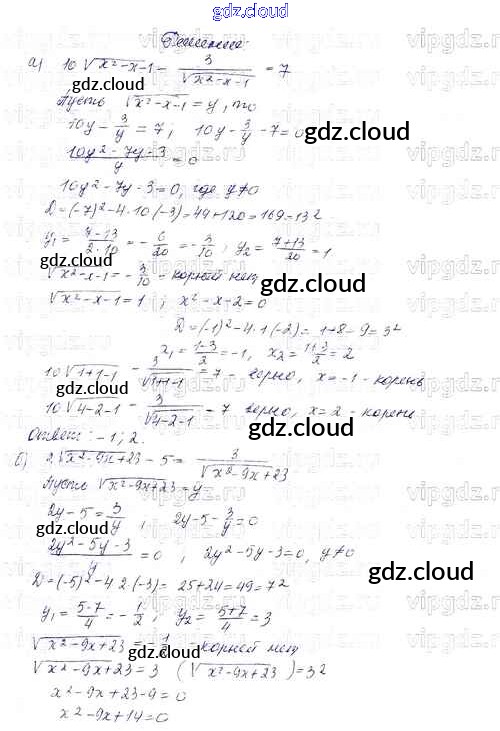 gdz.cloud
Решение:
а) 10√(x²-x-1) - 3/√(x²-x-1) = 7
Пусть √(x²-x-1) = y, то
10y - 3/y = 7; 10y - 3/y - 7 = 0
(10y² - 7y - 3)/y = 0
10y² - 7y - 3 = 0, где y≠0
D = (-7)² - 4·10(-3) = 49+120 = 169 = 13²
y₁ = (7-13)/(2·10) = -6/20 = -3/10; y₂ = (7+13)/20 = 1
√(x²-x-1) = -3/10 - корней нет
√(x²-x-1) = 1; x²-x-2=0
D = (-1)² - 4·1(-2) = 1+8 = 9 = 3²
x₁ = (1-3)/2 = -1, x₂ = (1+3)/2 = 2
10√(1+1-1) - 3/√(1+1-1) = 7 - верно, x = -1 - корень
10√(4-2-1) - 3/√(4-2-1) = 7 верно, x = 2 - корень
Ответ: -1; 2.
б) 2√(x²-9x+23) - 5 = 3/√(x²-9x+23)
Пусть √(x²-9x+23) = y
2y - 5 = 3/y, 2y - 5 - 3/y = 0
(2y² - 5y - 3)/y = 0, 2y² - 5y - 3 = 0, y≠0
D = (-5)² - 4·2·(-3) = 25+24 = 49 = 7²
y₁ = (5-7)/4 = -1/2; y₂ = (5+7)/4 = 3
√(x²-9x+23) = -1/2 корней нет
√(x²-9x+23) = 3 (√(x²-9x+23)) = 3²
x² - 9x + 23 - 9 = 0
x² - 9x + 14 = 0